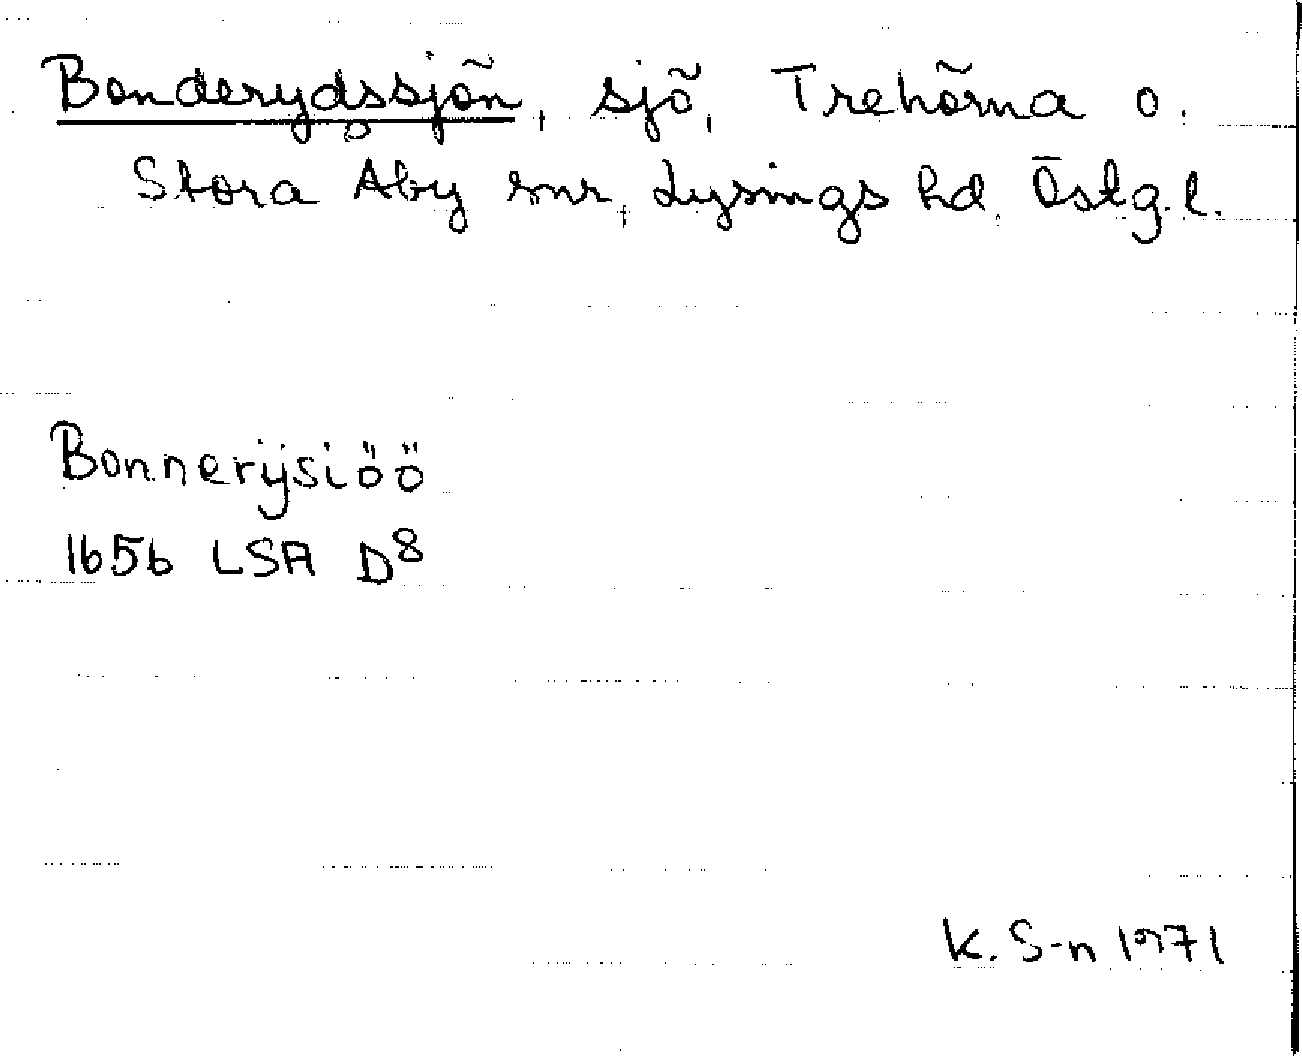 Bonderydssjön, sjö, Trehörna o.
Stora Åby snr, Lysings hd, Östg.l.
Bonnerÿsiöö
1656 LSA D8
K. S-n 1971